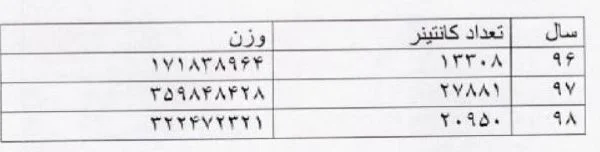 سال تعداد کانتینر وزن
۹۶ ۱۳۳۰۸ ۱۷۱۸۳۸۹۶۴
۹۷ ۲۷۸۸۱ ۳۵۹۸۴۸۴۲۸
۹۸ ۲۰۹۵۰ ۳۲۲۴۷۲۳۲۱